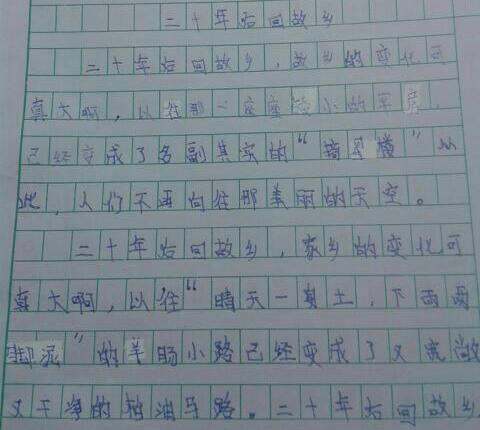 二十年后回故乡
二十年后回故乡，故乡的变化可
真大啊，以往那一座座矮小的房
已经变成了名副其实的“摘星楼”从
此，人们不再向往那美丽的天空。
二十年后回故乡，家乡的变化可
真大啊，以往“晴天一身土，下雨两
脚泥”的羊肠小路已经变成了又宽敞
又干净的柏油马路。二十年后回故乡